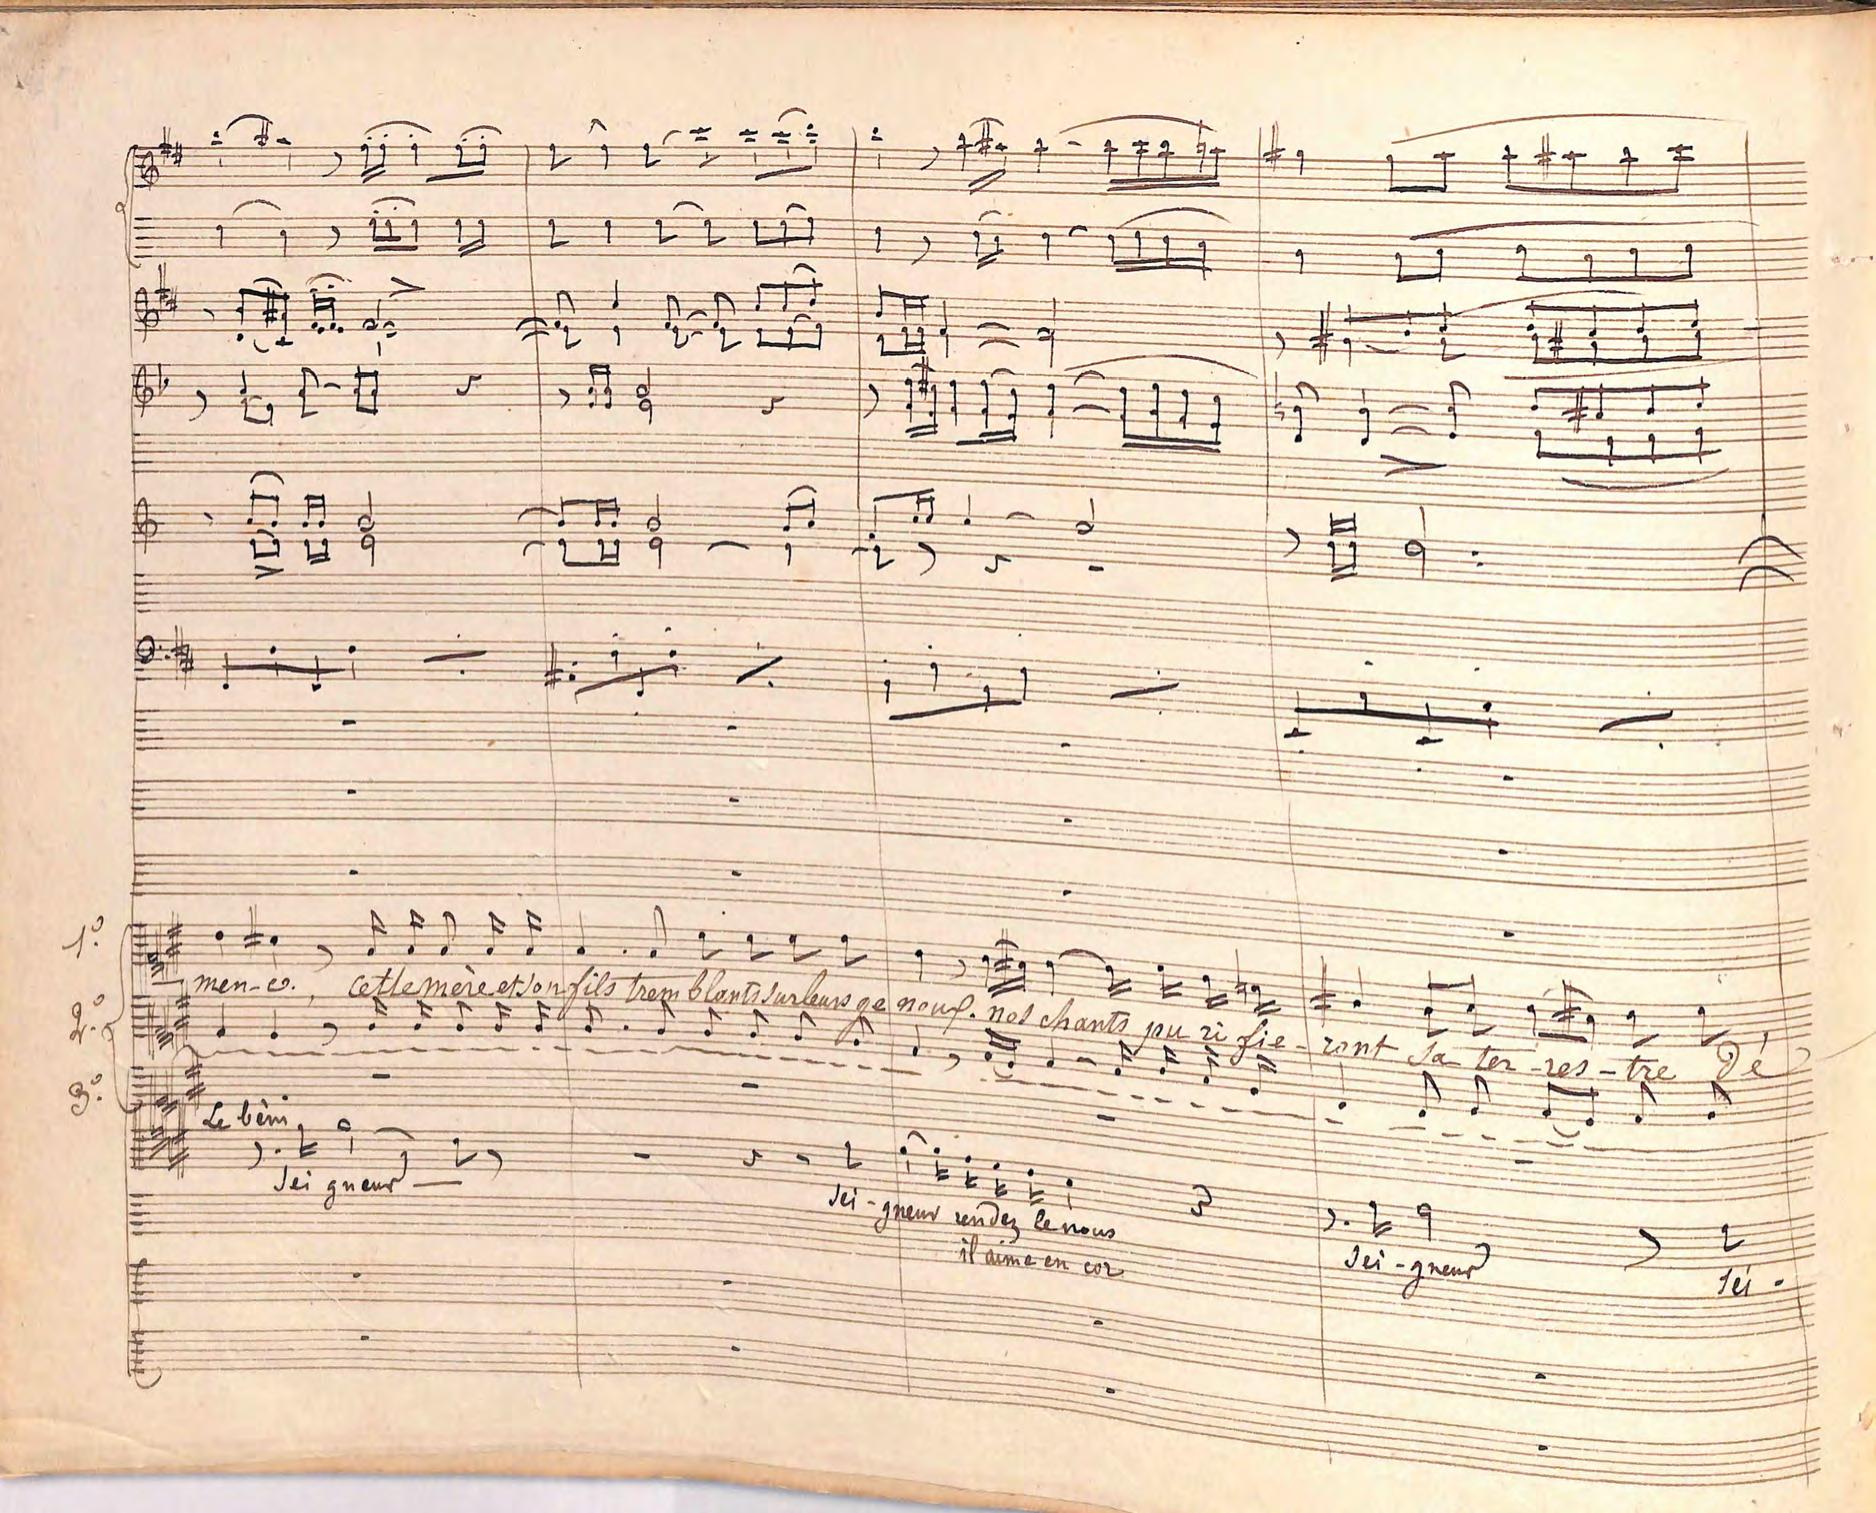 1.º
men-ce., cette mère et son fils tremblants sur leurs ge noux. nos chants pu ri fie - ront sa ter - res - tre Dé
2.º
3.º
Le béni
Sei gneur
Sei - gneur rendez le nous
il aime en cor
Sei - gneur
Sei -